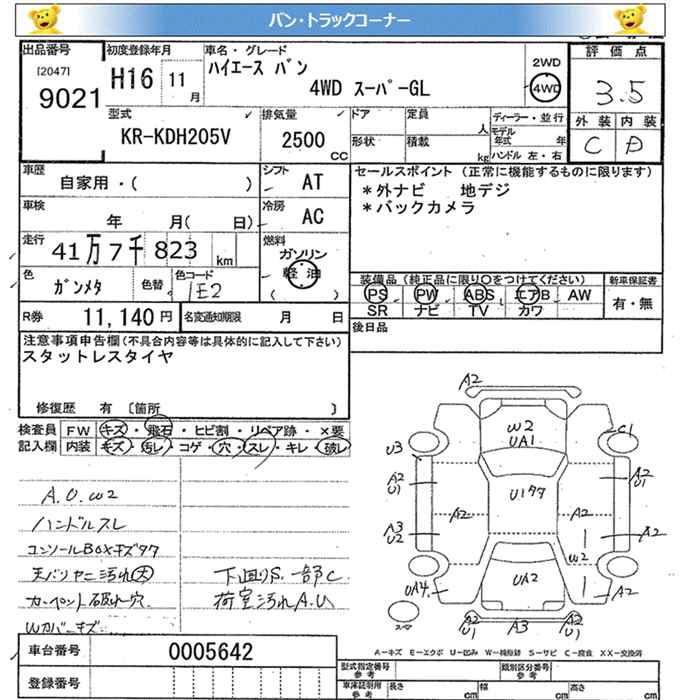 バン・トラックコーナー
出品番号 初度登録年月 車名・グレード 評価点
[2047] 9021 H16 11月 ハイエース バン 4WD スーパーGL 2WD 4WD 3.5
型式 排気量 ドア 定員 人 ディーラー・並行 外装 内装
KR-KDH205V 2500 CC 形状 積載 kg モデル年式 年 ハンドル 左・右 C D
車歴 自家用・( ) シフト AT
車検 年 月( 日) 冷房 AC
走行 41万7千823 km 燃料 ガソリン 軽油 ( )
色 ガンメタ 色替 色コード 1E2
R券 11,140円 名変通知期限 月 日
セールスポイント (正常に機能するものに限ります)
*外ナビ 地デジ
*バックカメラ
装備品 (純正品に限り○をつけてください) 新車保証書
PS PW ABS エアB AW 有・無
SR ナビ TV カワ
後日品
注意事項申告欄(不具合内容等は具体的に記入して下さい)
スタットレスタイヤ
修復歴 有 〔箇所 〕
検査員 FW キズ・飛石・ヒビ割・リペア跡・×要
記入欄 内装 キズ・汚レ・コゲ・穴・スレ・キレ・破レ
A.O.W2
ハンドルスレ
コンソールBOXキズワク
天バリヤニ汚れ大
カーペット破れ穴
Wカバーキズ
下廻りS.一部C
荷室汚れA.U
A2
W2
UA1
C1
U3
A2
U1
U1ワク
A2
U1
A2
A2
A3
U2
A2
W2
UA4
UA2
A2
A2
U1
A3
A2
U1
A-キズ E-エクボ U-凹み W-補修跡 S-サビ C-腐食 XX-交換済
車台番号 0005642
登録番号
型式指定番号 参考 類別区分番号 参考
車庫証明用 参考 長さ cm 幅 cm 高さ cm